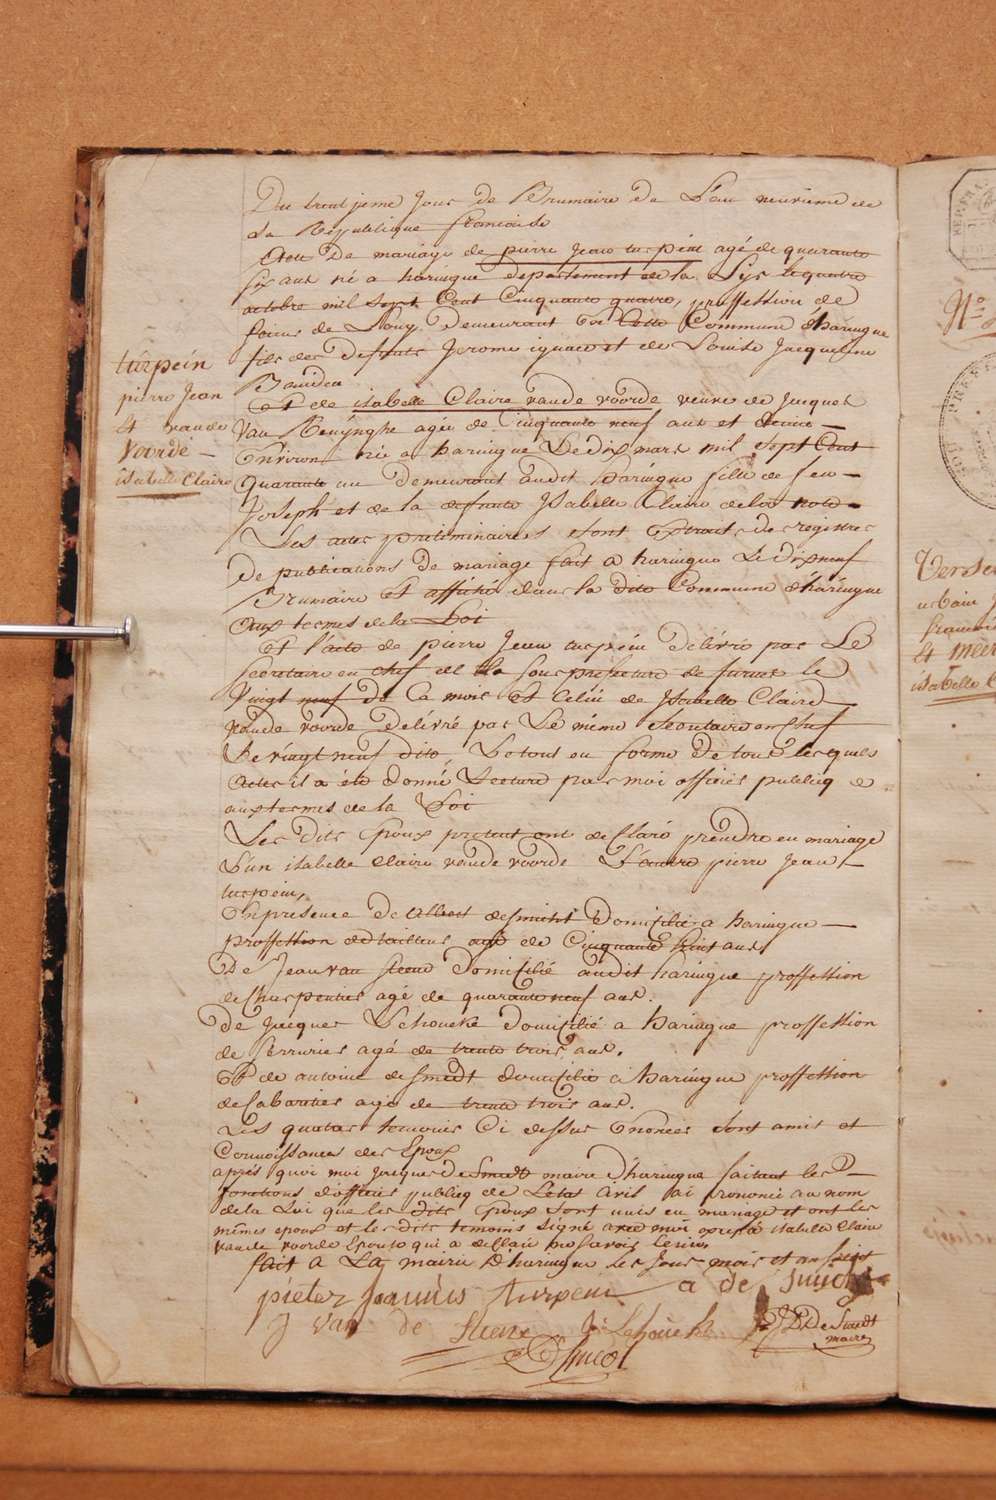 Du trentieme Jour de Brumaire de L'an neuvieme de
La République francaise
Acte De mariage de pierre Jean turpein agé de quarante
six ans né a haringue departement de la Lys le quatre
octobre mil Sept Cent Cinquante quatre, proffession de
Demeurant En Cette Commune d'haringue
fils des Defunts Jerome ignace et de Louise Jacqueline
Et de isabelle Claire vande voorde veuve de Jacques
Van agée de Cinquante neuf ans et Demie
Environ née a haringue Le dix mars mil Sept Cent
Quarante un Demeurant audit haringue fille de feu
Joseph et de la defunte Isabelle Claire
Les actes preliminaires sont Extraits de registres
De publications De mariage fait a haringue Le dixneuf
Brumaire Et affiché dans la dite Commune d'haringue
aux termes de la Loi
Et l'acte de pierre Jean turpein Delivré par Le
Secretaire en chef de la Sousprefecture de furnes le
Vingt neuf De Ca mois Et Celui de Isabelle Claire
vande voorde Delivré par Le même Secretaire en Chef
Le vingt neuf dito, Le tout en forme De tous lesquels
actes il a été donné Lecture par moi officier publicq
aux termes de la Loi
Les Dits Epoux present ont declaré prendre en mariage
L'un isabelle Claire vande voorde L'autre pierre Jean
turpein,
En presence De Albert desmicht Domicilié a haringue
proffession de tailleur agé de Cinquante huit ans
De Jean van steene Domicilié audit haringue proffession
de Charpentier agé de quarante neuf ans.
De Jacques Lehoucke Domicilié a haringue proffession
de serrurier agé de trente trois ans.
Et de antoine desmedt domicilié a haringue proffession
de Cabaretier agé de trente trois ans.
Les quatre temoins Ci dessus Enoncés sont amis et
Connoissances des Epoux
aprés quoi moi Jacques Desmedt maire D'haringue faisant les
fonctions d'officier publicq de L'etat Civil ai prononcé au nom
de la Loi que les dits Epoux sont unis en mariage et ont les
mêmes epoux et les dits temoins signé avec moi excepté isabelle Claire
vande voorde Epouse qui a declaré ne savoir Ecrire
fait a La mairie D'haringue les Jour mois et an susdit
pieter Joannis turpein a de smidt
J van de steene J: Lehoucke J D De Smedt
maire
turpein
pierre Jean
& vande
voorde
isabelle Claire
N°
urbain
françois
& meer
isabelle C